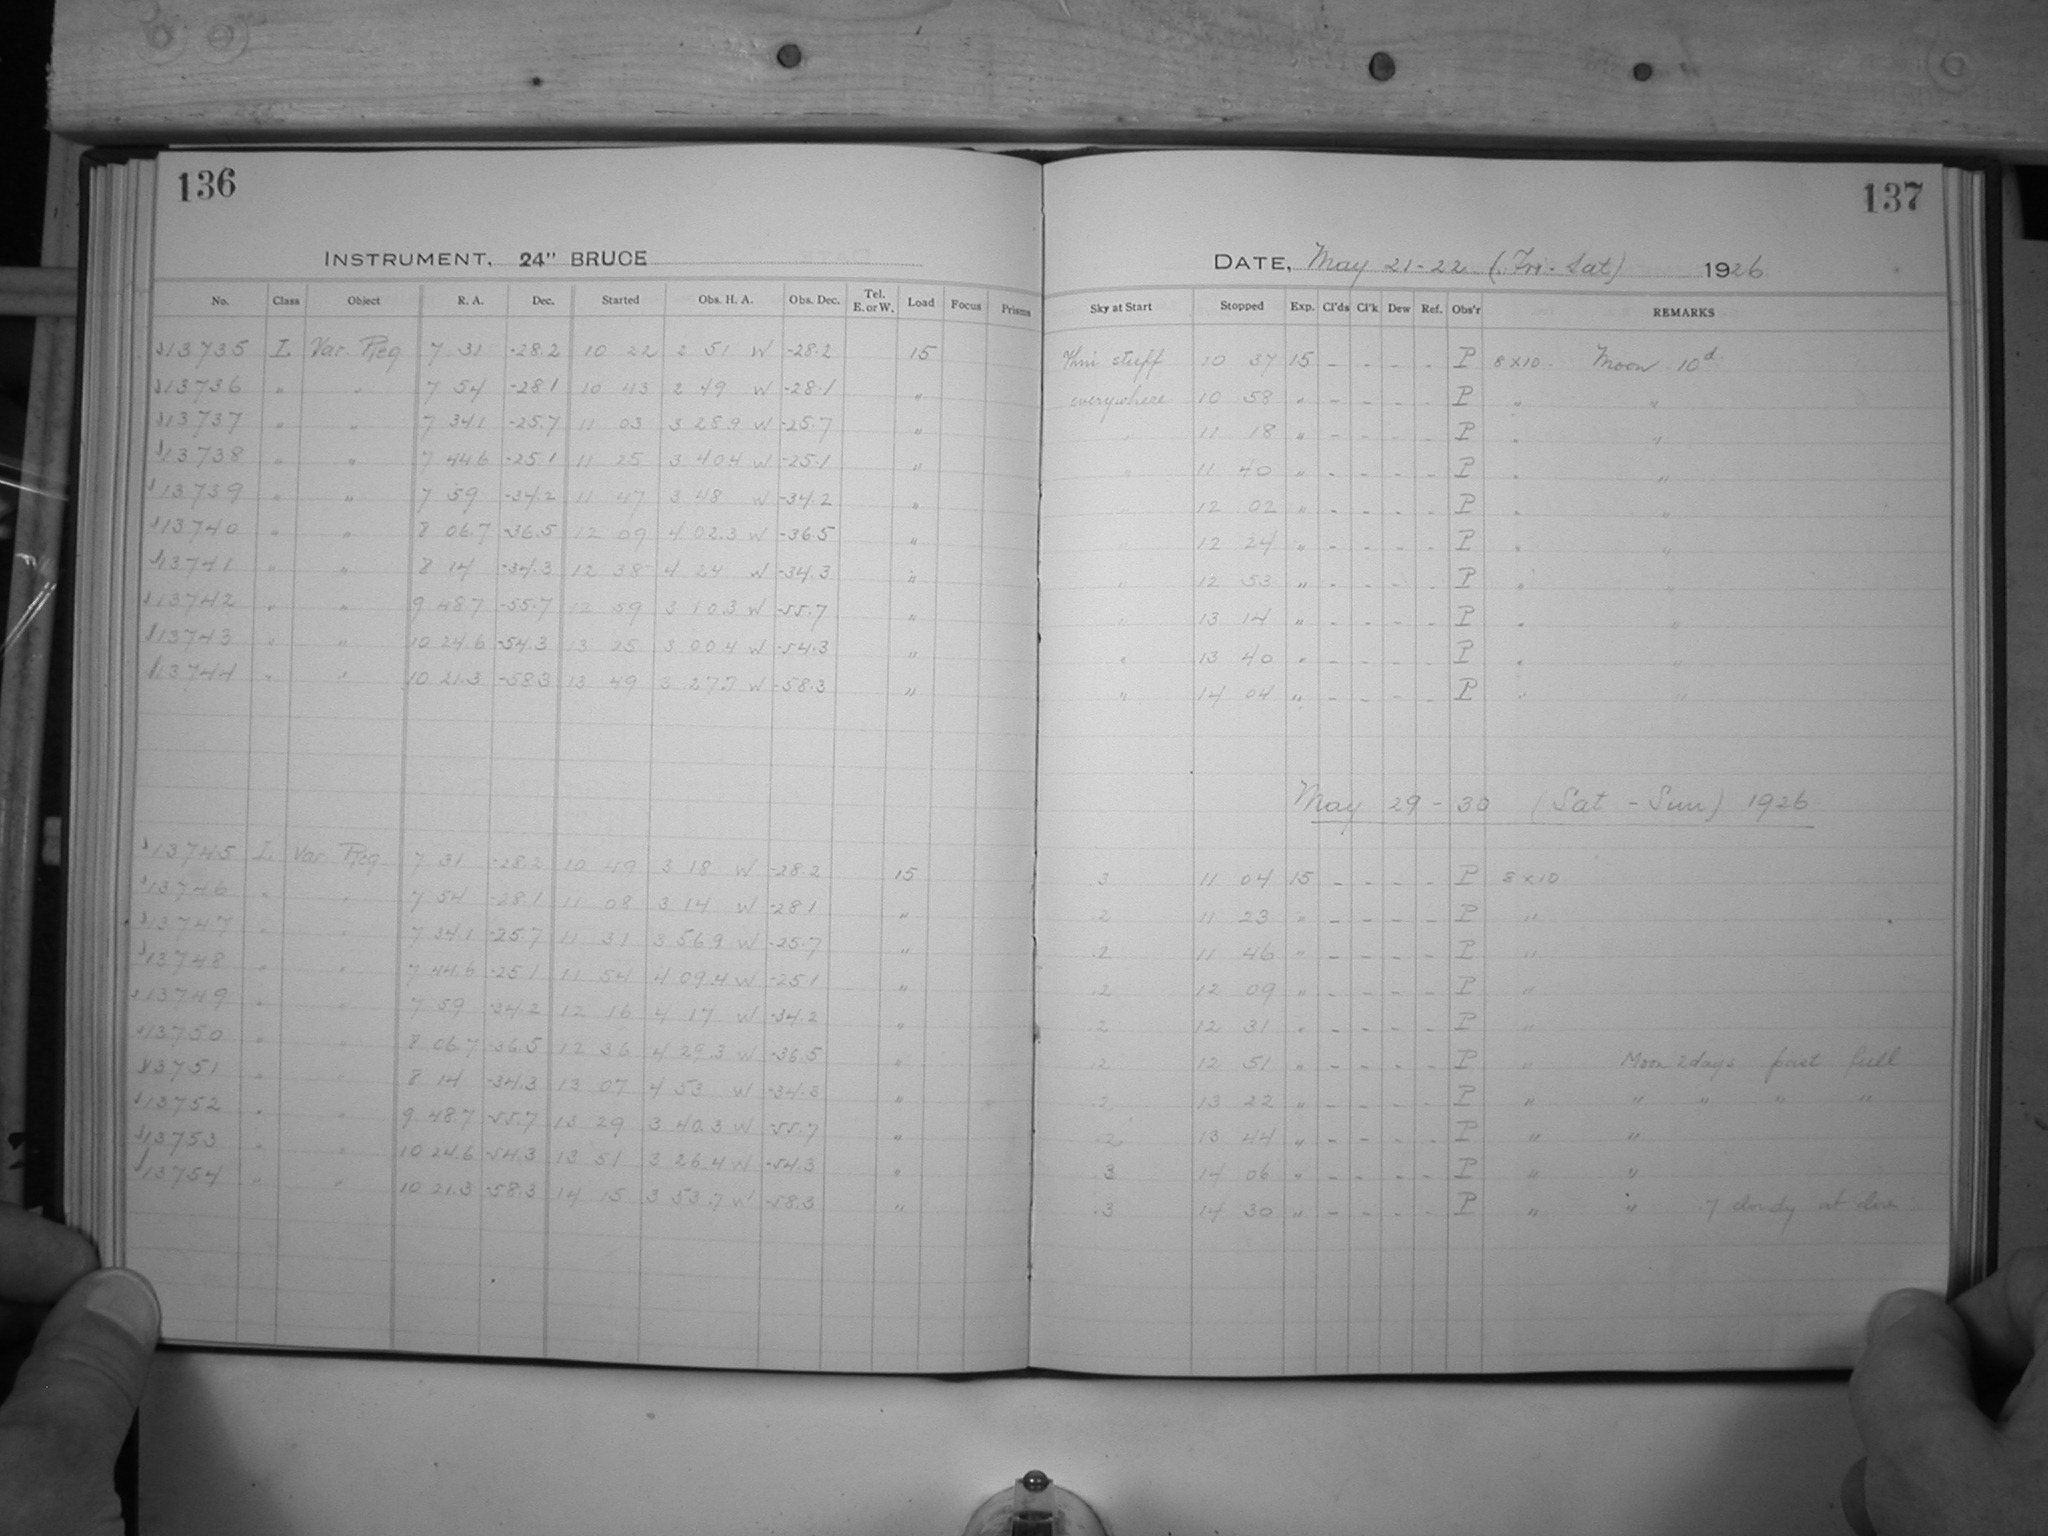 136
137
INSTRUMENT, 24" BRUCE
DATE, May 21-22 (Fri-Sat) 1926
No. Class Object R. A. Dec. Started Obs. H. A. Obs. Dec. Tel. E. or W. Load Focus Prisms Sky at Start Stopped Exp. Cl'ds Cl'k Dew Ref. Obs'r REMARKS
13735 I Var. Reg 7 31 -28.2 10 22 2 51 W -28.2 15 Thin stuff 10 37 15 - - - - P 8x10 Moon 10d
13736 " " 7 54 -28.1 10 43 2 49 W -28.1 " everywhere 10 58 " - - - - P " "
13737 " " 7 34.1 -25.7 11 03 3 28.9 W -25.7 " " 11 18 " - - - - P " "
13738 " " 7 44.6 -25.1 11 25 3 40.4 W -25.1 " " 11 40 " - - - - P " "
13739 " " 7 59 -34.2 11 47 3 48 W -34.2 " " 12 02 " - - - - P " "
13740 " " 8 06.7 -36.5 12 09 4 02.3 W -36.5 " " 12 24 " - - - - P " "
13741 " " 8 14 -34.3 12 38 4 24 W -34.3 " " 12 53 " - - - - P " "
13742 " " 9 48.7 -55.7 12 59 3 10.3 W -55.7 " " 13 14 " - - - - P " "
13743 " " 10 24.6 -54.3 13 25 3 00.4 W -54.3 " " 13 40 " - - - - P " "
13744 " " 10 21.3 -58.3 13 49 3 27.7 W -58.3 " " 14 04 " - - - - P " "
May 29-30 (Sat-Sun) 1926
13745 I Var Reg 7 31 -28.2 10 49 3 18 W -28.2 15 .3 11 04 15 - - - - P 8x10
13746 " " 7 54 -28.1 11 08 3 14 W -28.1 " .2 11 23 " - - - - P "
13747 " " 7 34.1 -25.7 11 31 3 56.9 W -25.7 " .2 11 46 " - - - - P "
13748 " " 7 44.6 -25.1 11 54 4 09.4 W -25.1 " .2 12 09 " - - - - P "
13749 " " 7 59 -34.2 12 16 4 17 W -34.2 " .2 12 31 " - - - - P "
13750 " " 8 06.7 -36.5 12 36 4 29.3 W -36.5 " .2 12 51 " - - - - P " Moon 2 days past full
13751 " " 8 14 -34.3 13 07 4 53 W -34.3 " .2 13 22 " - - - - P " " " " "
13752 " " 9 48.7 -55.7 13 29 3 40.3 W -55.7 " .2 13 44 " - - - - P " "
13753 " " 10 24.6 -54.3 13 51 3 26.4 W -54.3 " .3 14 06 " - - - - P " "
13754 " " 10 21.3 -58.3 14 15 3 53.7 W -58.3 " .3 14 30 " - - - - P " " .7 cloudy at close